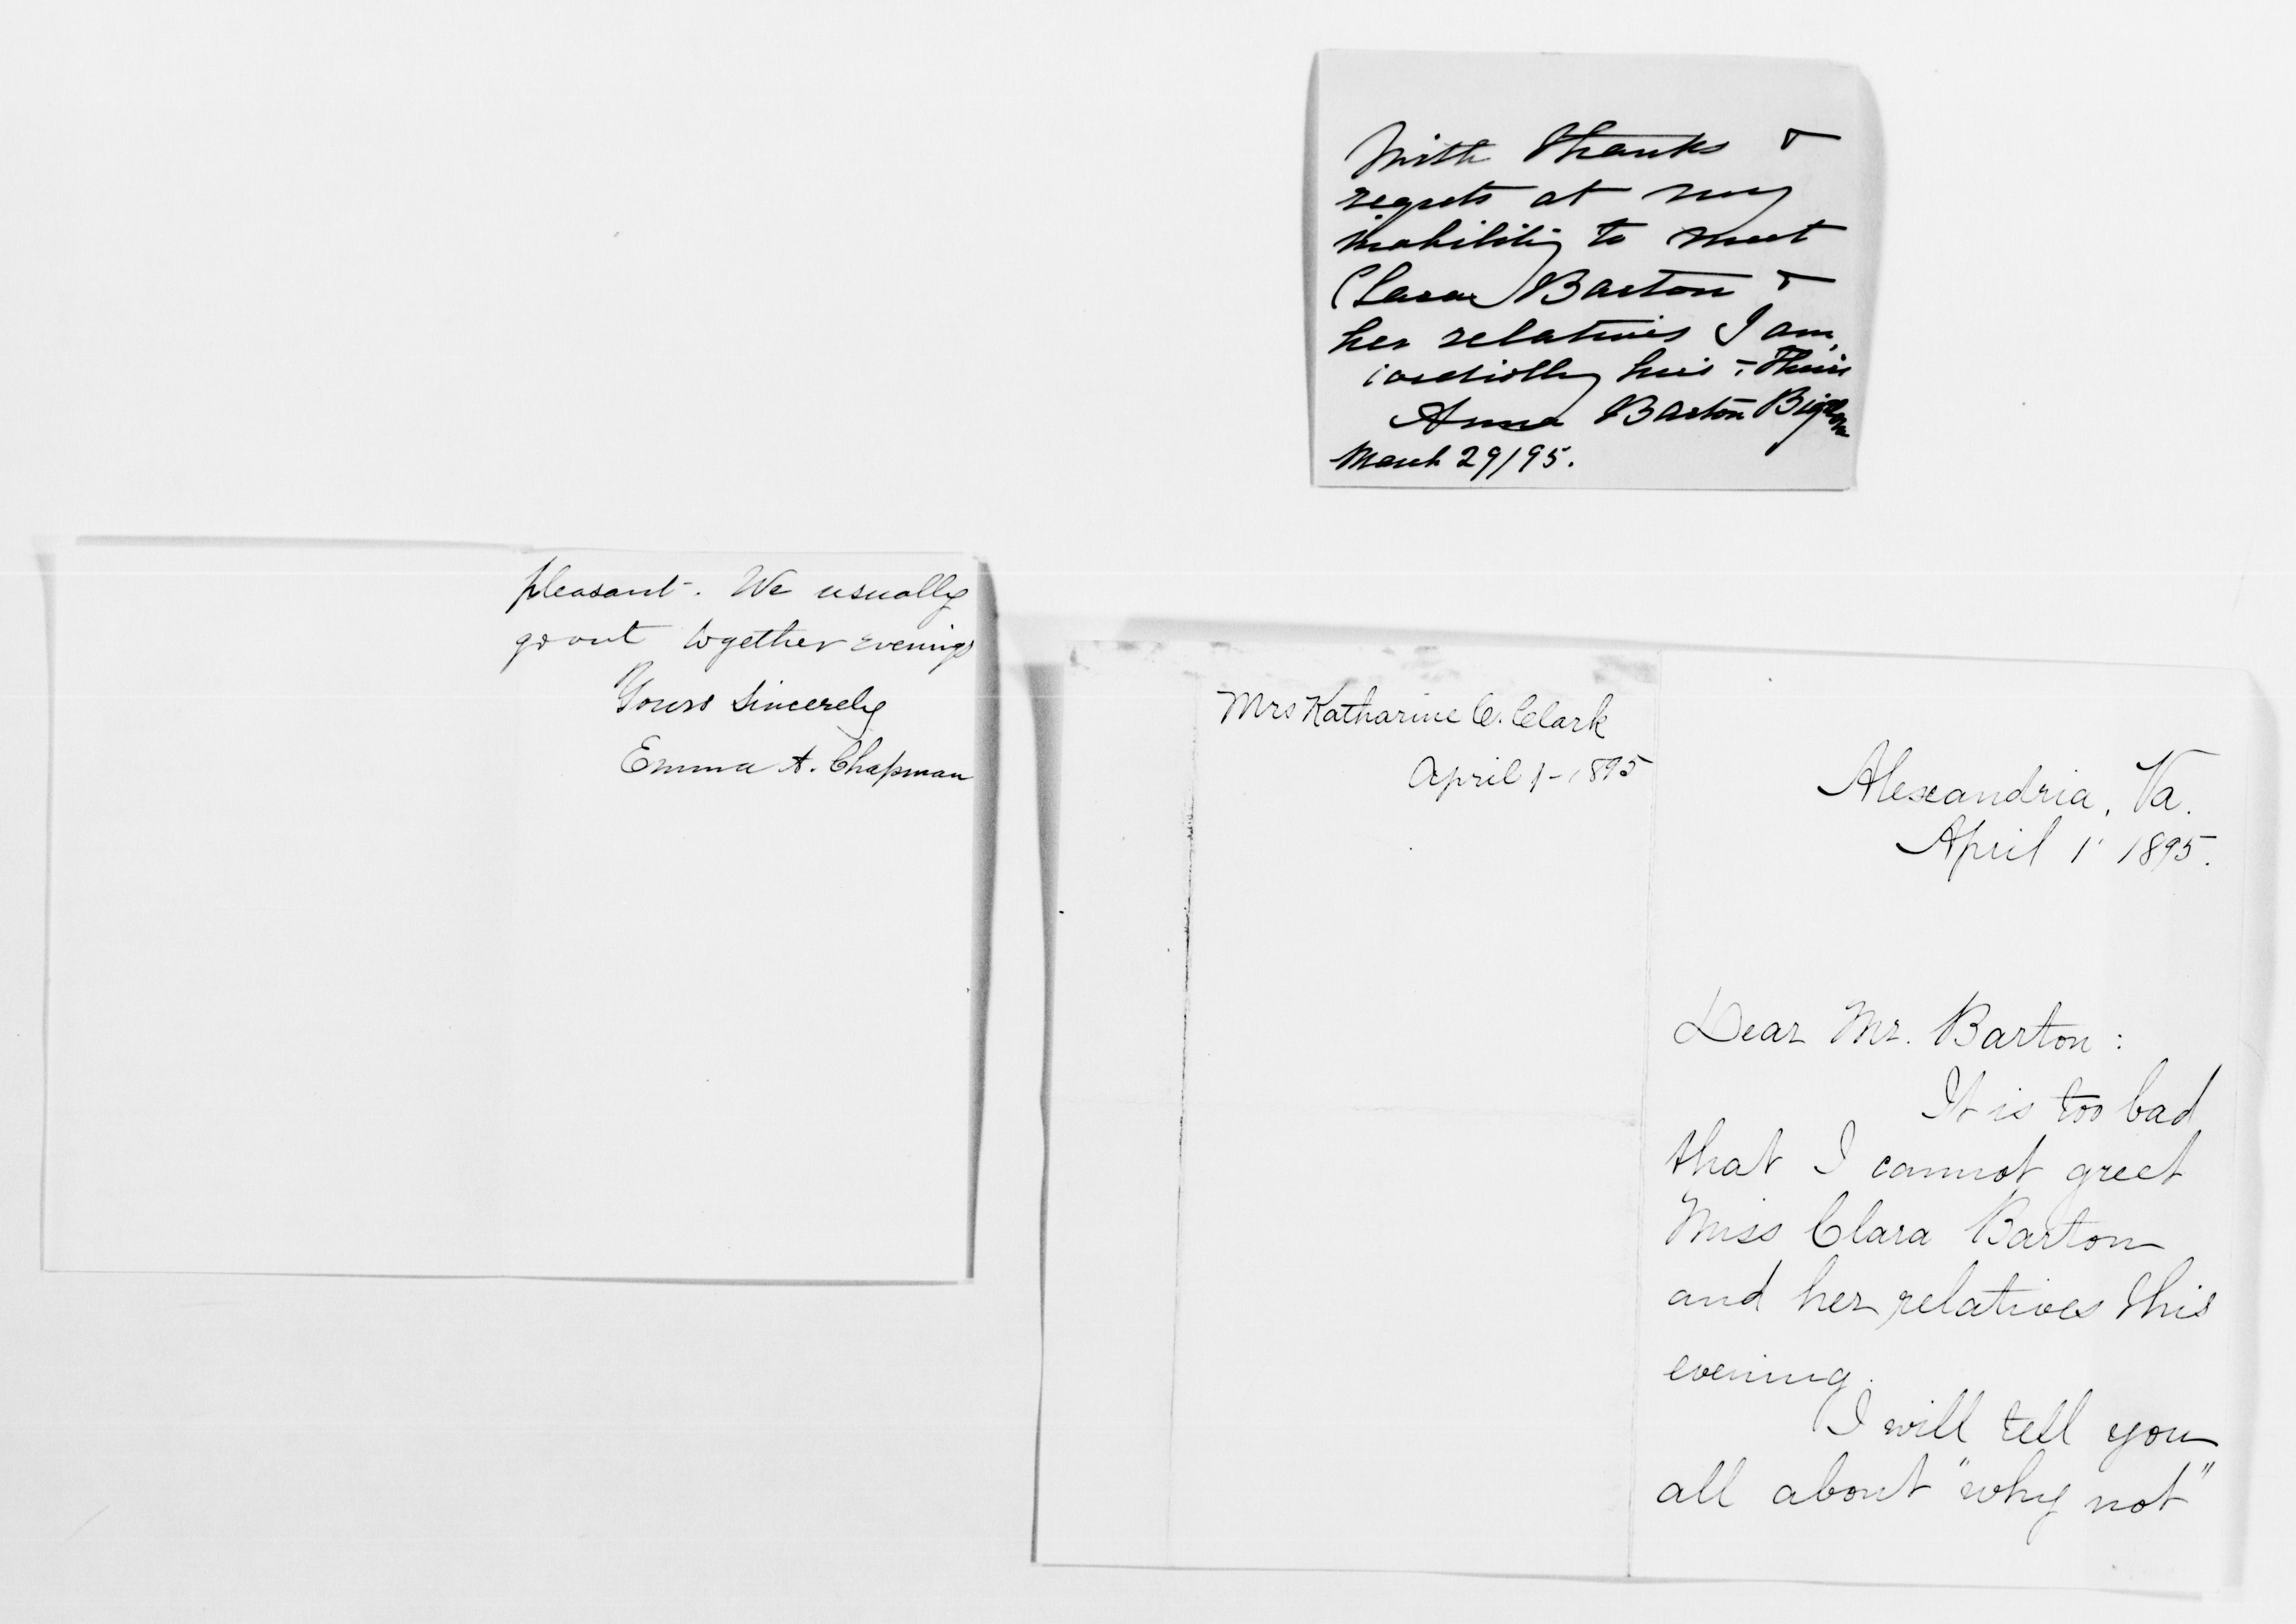 With thanks &
regrets at my
inability to meet
Clara Barton &
her relatives I am,
cordially hers & theirs
Anna Barton Bigelow
March 29/95.
pleasant. We usually
go out together evenings
Yours sincerely
Emma A. Chapman
Mrs Katharine C. Clark
April 1-1895
Alexandria, Va.
April 1' 1895.
Dear Mr. Barton:
It is too bad
that I cannot greet
Miss Clara Barton
and her relatives this
evening.
I will tell you
all about "why not"